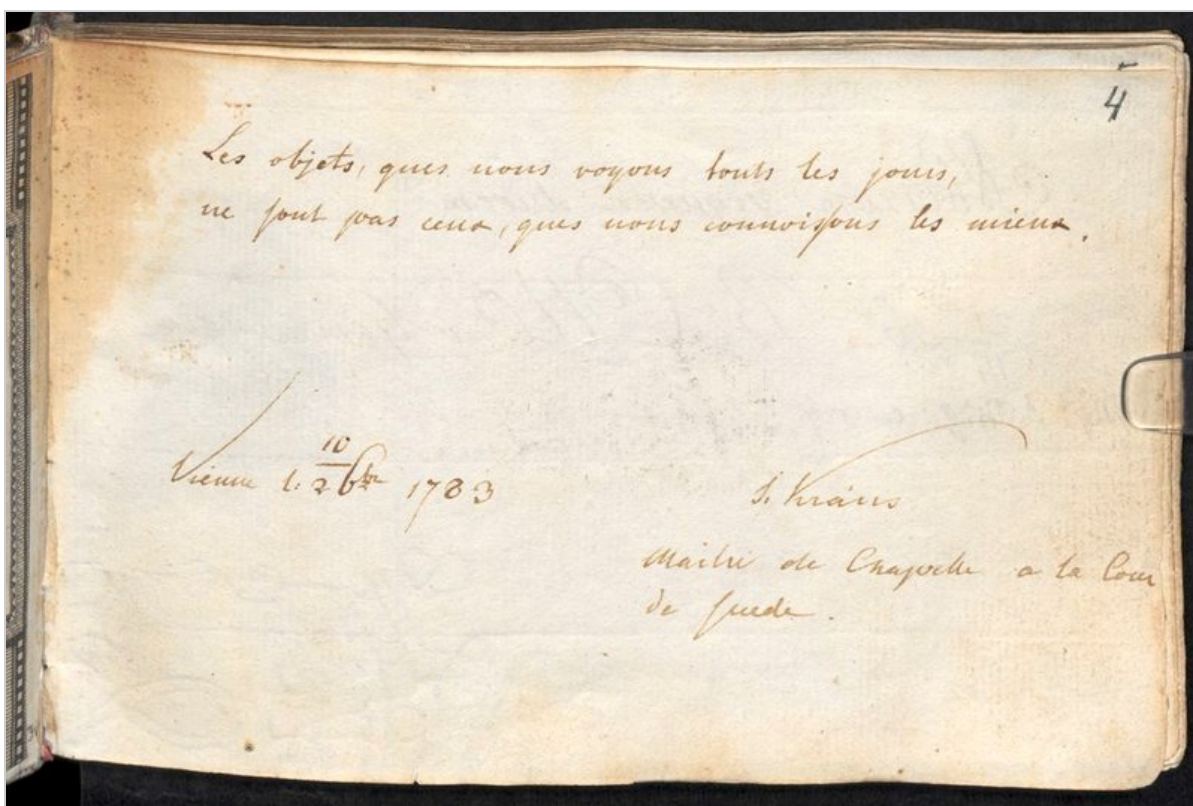 4
Les objets, ques nous voyons touts les jours,
ne sont pas ceux, ques nous connoissons les mieux.
10
Vienne l. 2 1783
J. Kraus
Maitre de Chapelle a la Cour
de Suede.